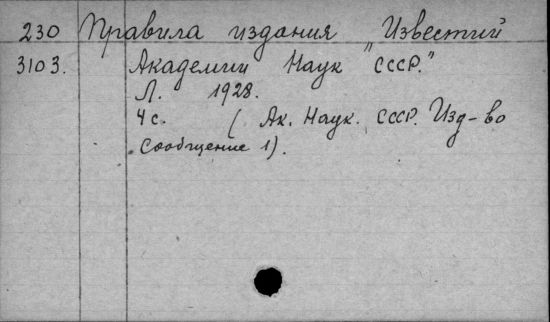 230 Правила издания "Известий
3103. Академии Наук СССР."
Л. 1928.
4 с. (Ак. Наук. СССР. Изд-во
Сообщение 1).